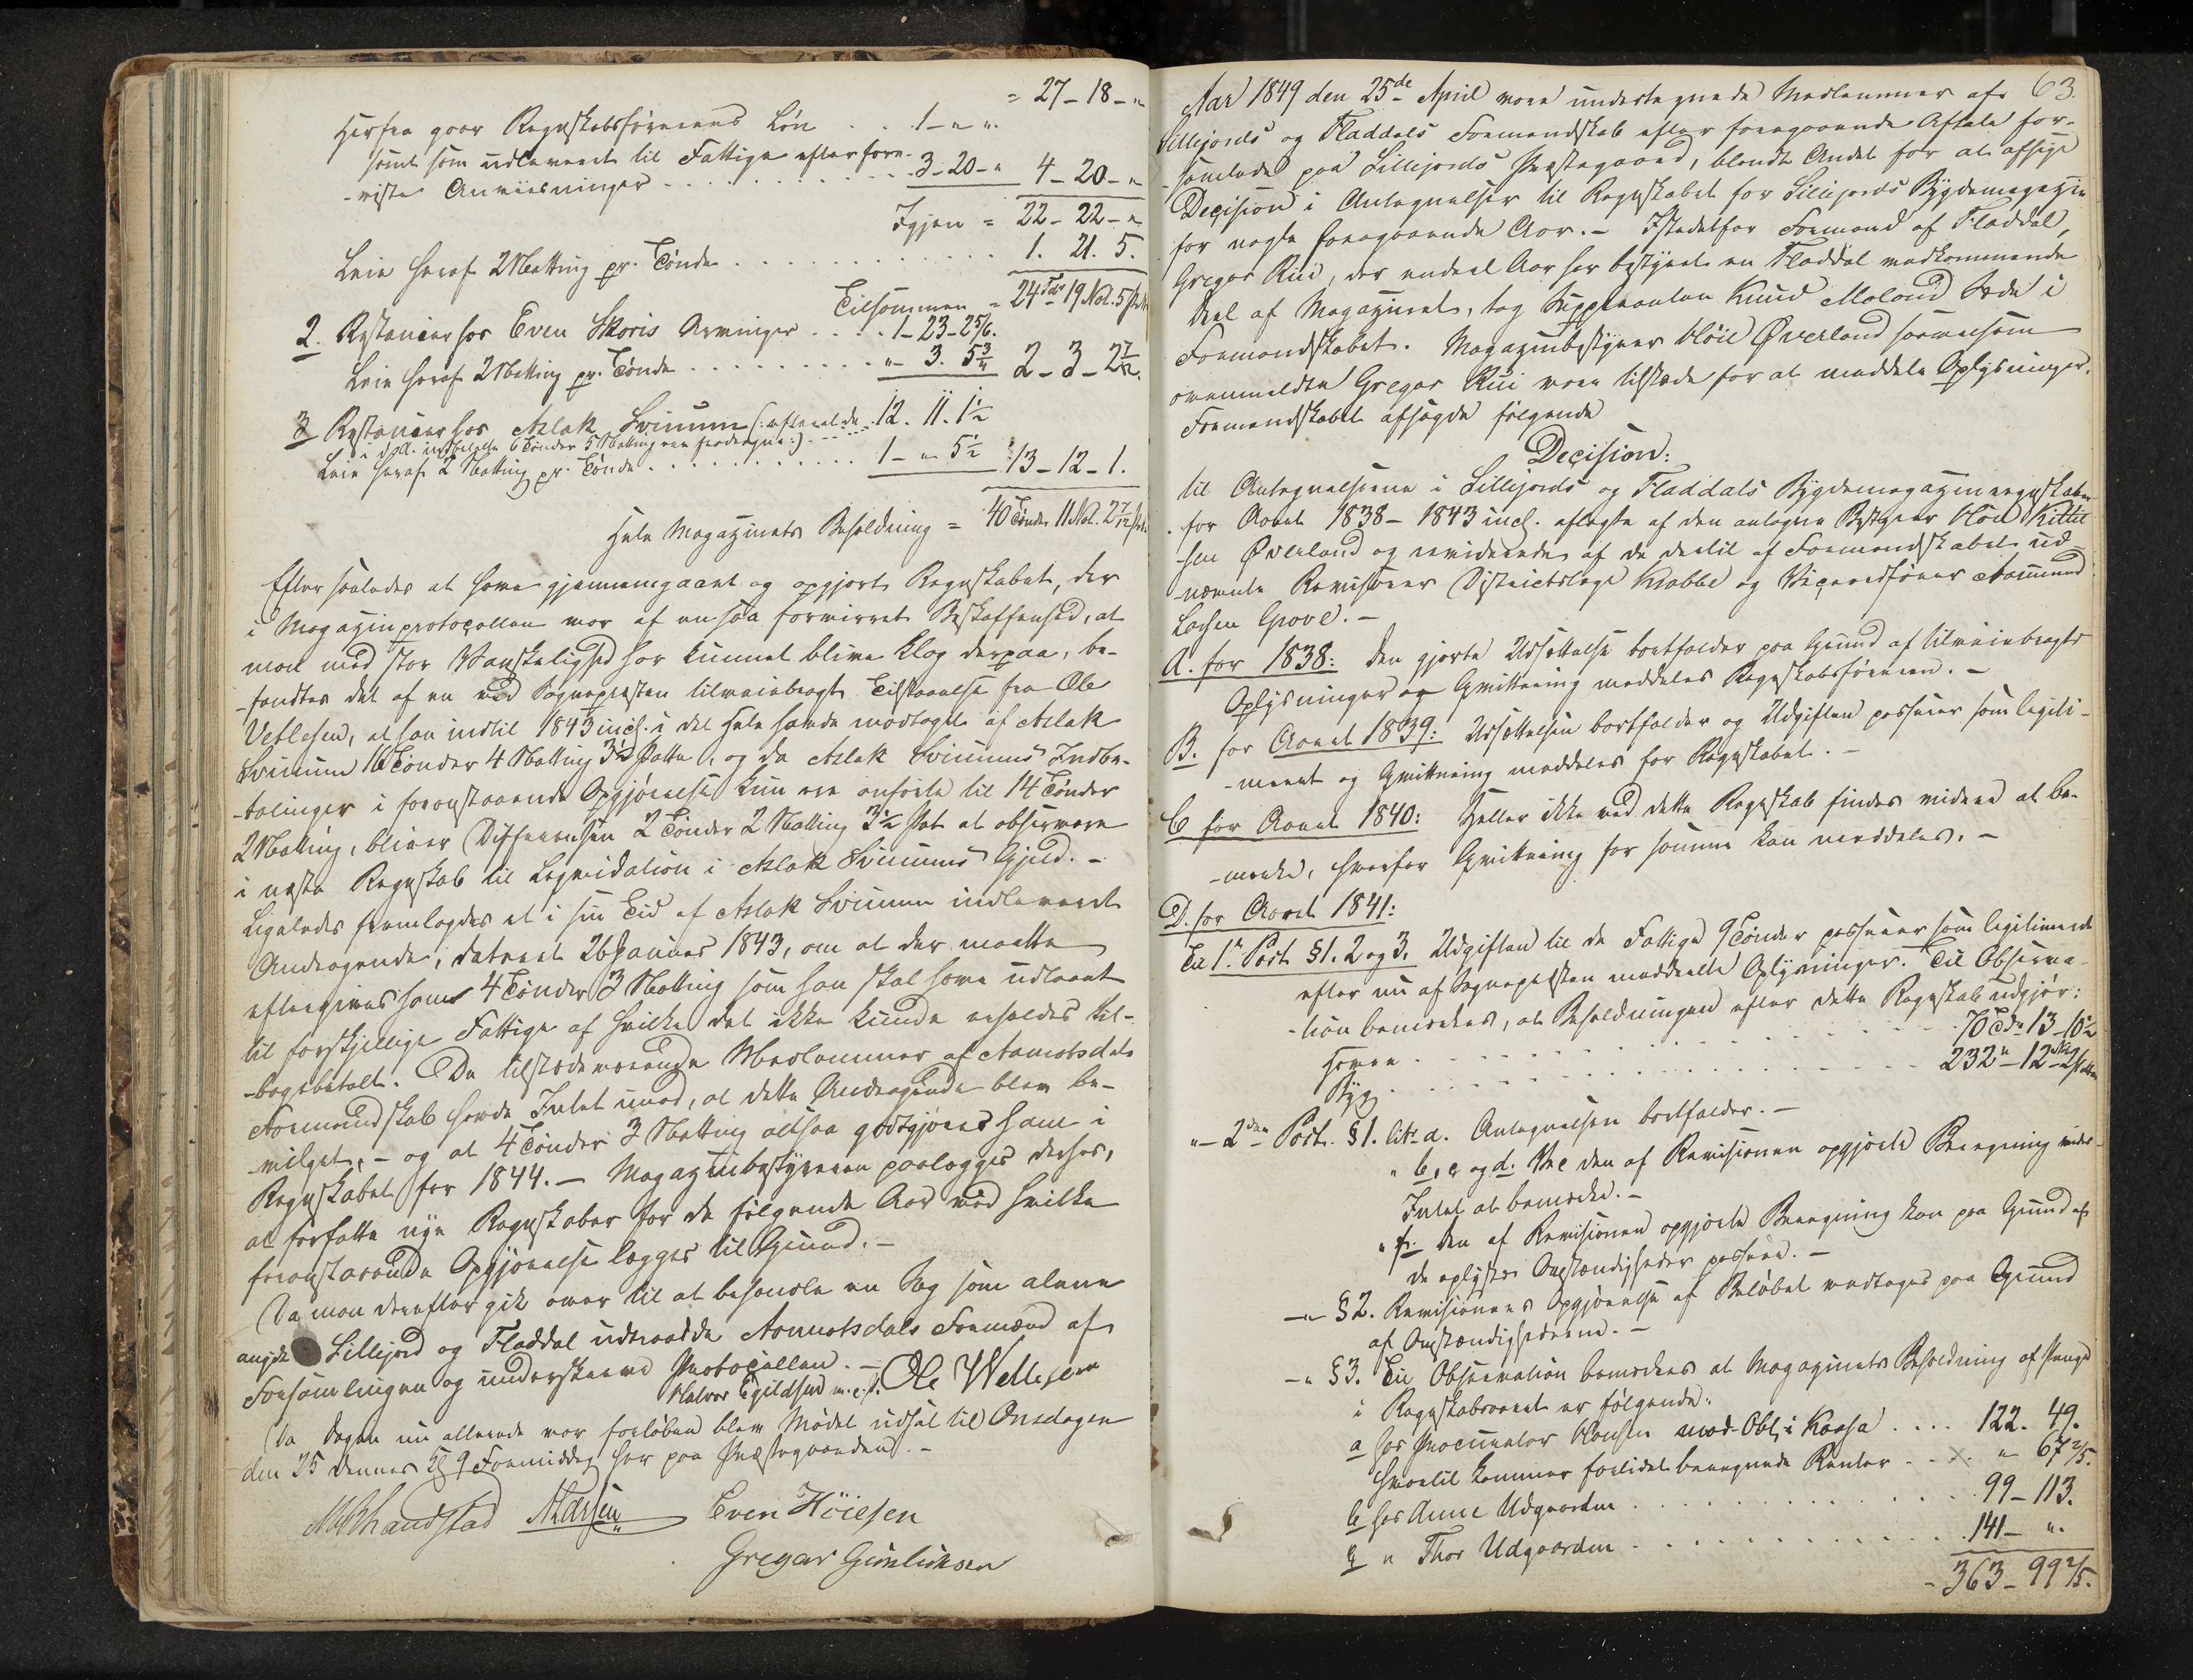 = 27 - 18 - "
Herfra gaar Regnskabsførerens Løn . . 1 - " ".
samt som udleveret til Fattige efter fore-
-viste Anviisninger . . . . . . . . . . . 3 - 20 - " 4 - 20 - "
Igjen = 22 - 22 - "
Leie heraf 2 Matting pr. Tønde . . . . . . . . . . . . . 1. 21. 5.
Tilsammen = 24 Tdr 19 Mat. 5
2. Restancer hos Even Skoris Arvinger . . . . 1 - 23 - 2 5/6.
Leie heraf 2 Matting pr. Tønde . . . . . . . . . " - 3. 5 3/4 2 - 3 - 2 7/12.
3 Restancer hos Aslak Sviuum (: afteralede 12. 11. 1 1/2
indbetalte 6 Tønder 5 Matting :) . . . .
Leie heraf 2 Matting pr. Tønde . . . . . . . . . . . 1 - " - 5 1/2 13 - 12 - 1.
Hele Magazinets Beholdning = 40 Tønder 11 Mat. 2 7/12
Efter saaledes at have gjennemgaaet og opgjort Regnskabet, der
i Magazinprotocollen var af en saa forvirret Beskaffenhed, at
man med stor Vanskelighed har kunnet blive klog derpaa, be-
-fandtes det af en ved Sognepræsten tilveiebragt Tilstaaelse fra Ole
Vetlesen, at han indtil 1843 incl. i det Hele havde modtaget af Aslak
Sviuum 16 Tønder 4 Matting 3 1/2 Potte, og da Aslak Sviuums Indbe-
-talinger i foranstaaende Opgjørelse kun ere anførte til 14 Tønder
2 Matting, bliver Differensen 2 Tønder 2 Matting 3 1/2 Pot at observere
i næste Regnskab til Liqvidation i Aslak Sviuums Gjæld. -
Ligeledes fremlagdes et i sin Tid af Aslak Sviuum indleveret
Andragende, dateret 26 Januar 1843, om at der maatte
eftergives ham 4 Tønder 3 Matting som han skal have udlaant
til forskjellige Fattige af hvilke det ikke kunde erholdes til-
-bagebetalt. De tilstedeværende Medlemmer af Aamotsdals
Formandskab havde Intet imod, at dette Andragende blev be-
-vilget, - og at 4 Tønder 3 Matting altsaa godtgjøres ham i
Regnskabet for 1844. - Magazinbestyreren paalægges derhos,
at forfatte nye Regnskaber for de følgende Aar ved hvilke
foranstaaende Opgjørelse lægges til Grund. -
Da man derefter gik over til at behandle en Sag som alene
angik Sillejord og Fladdal udtraadde Aamotsdals Formænd af
Forsamlingen og underskreve Protocollen. -
Halvor Egildsen m.p.P. Ole Wetlesen
Da Dagen nu allerede var forløben blev Mødet udsat til Onsdagen
den 25 dennes Kl 9 Formiddag her paa Præstegaarden. -
M Brandstad N Larsen Even Høiesen
Gregar Gunliksen
63.
Aar 1849 den 25de April vare undertegnede Medlemmer af
Sillejords og Fladdals Formandskab efter foregaaende Aftale for-
-samlede paa Sillejords Præstegaard, blandt Andet for at afsige
Decision i Antegnelser til Regnskabet for Sillejords Bygdemagazin
for nogle foregaaende Aar. - Istedetfor Formand af Fladdal,
Gregar Rui, der endeel Aar har bestyret en Fladdal vedkommende
Deel af Magazinet, tog Suppleanten Knud Moland Sæde i
Formandskabet. Magazinbestyrer Høie Øverland saavelsom
ovenmeldte Gregar Rui vare tilstæde for at meddele Oplysninger.
Formandskabet afsagde følgende
Decision:
til Antegnelserne i Sillejords og Fladdals Bygdemagazinregnskaber
for Aaret 1838 - 1843 incl. aflagte af den antagne Bestyrer Høie Kittil-
-sen Øverland og reviderede af de dertil af Formandskabet ud-
-nævnte Revisorer Districtslæge Krabbe og Viceordfører Aasmund
Larsen Grave. -
A. for 1838: Den gjorte Udsættelse bortfalder paa Grund af tilveiebragte
Oplysninger og Qvittering meddeles Regnskabsføreren. -
B. for Aaret 1839: Udsættelsen bortfalder og Udgiften passerer som legiti-
-meret og Qvittering meddeles for Regnskabet. -
C for Aaret 1840: Heller ikke ved dette Regnskab findes videre at be-
-mærke, hvorfor Qvittering for samme kan meddeles. -
D. for Aaret 1841:
Til 1ste Post §1. 2 og 3. Udgiften til de Fattige 9 Tønder passerer som legitimeret
efter nu af Sognepræsten meddeelte Oplysninger. Til Observa-
-tion bemærkes, at Beholdningen efter dette Regnskab udgjør:
Havre . . . . . . . . . . . . . . . 70 Tdr 13 - 10 1/2
Byg . . . . . . . . . . . . . . . . 232 " - 12 2
" - 2den Post. §1. litr. a. Antegnelsen bortfalder. -
" b, c og d. Ved den af Revisionen opgjorte Beregning
Intet at bemærke. -
" f. Den af Revisionen opgjorte Beregning kan paa Grund af
de oplyste Omstændigheder passere. -
- " - §2. Revisionens Opgjørelse af Beløbet vedtages paa Grund
af Omstændighederne. -
- " §3. Til Observation bemærkes at Magazinets Beholdning af Penge
i Regnskabsaaret er følgende:
a hos Procurator Hansen mod Obl. i Kassa . . . . 122. 49.
hvortil kommer forlidet beregnede Renter . . x. " 67 2/5.
b hos Anne Udgaarden . . . . . . . . . . . . . 99 - 113.
c " Thor Udgaarden . . . . . . . . . . . . . 141 - ".
- 363 - 99 2/5.